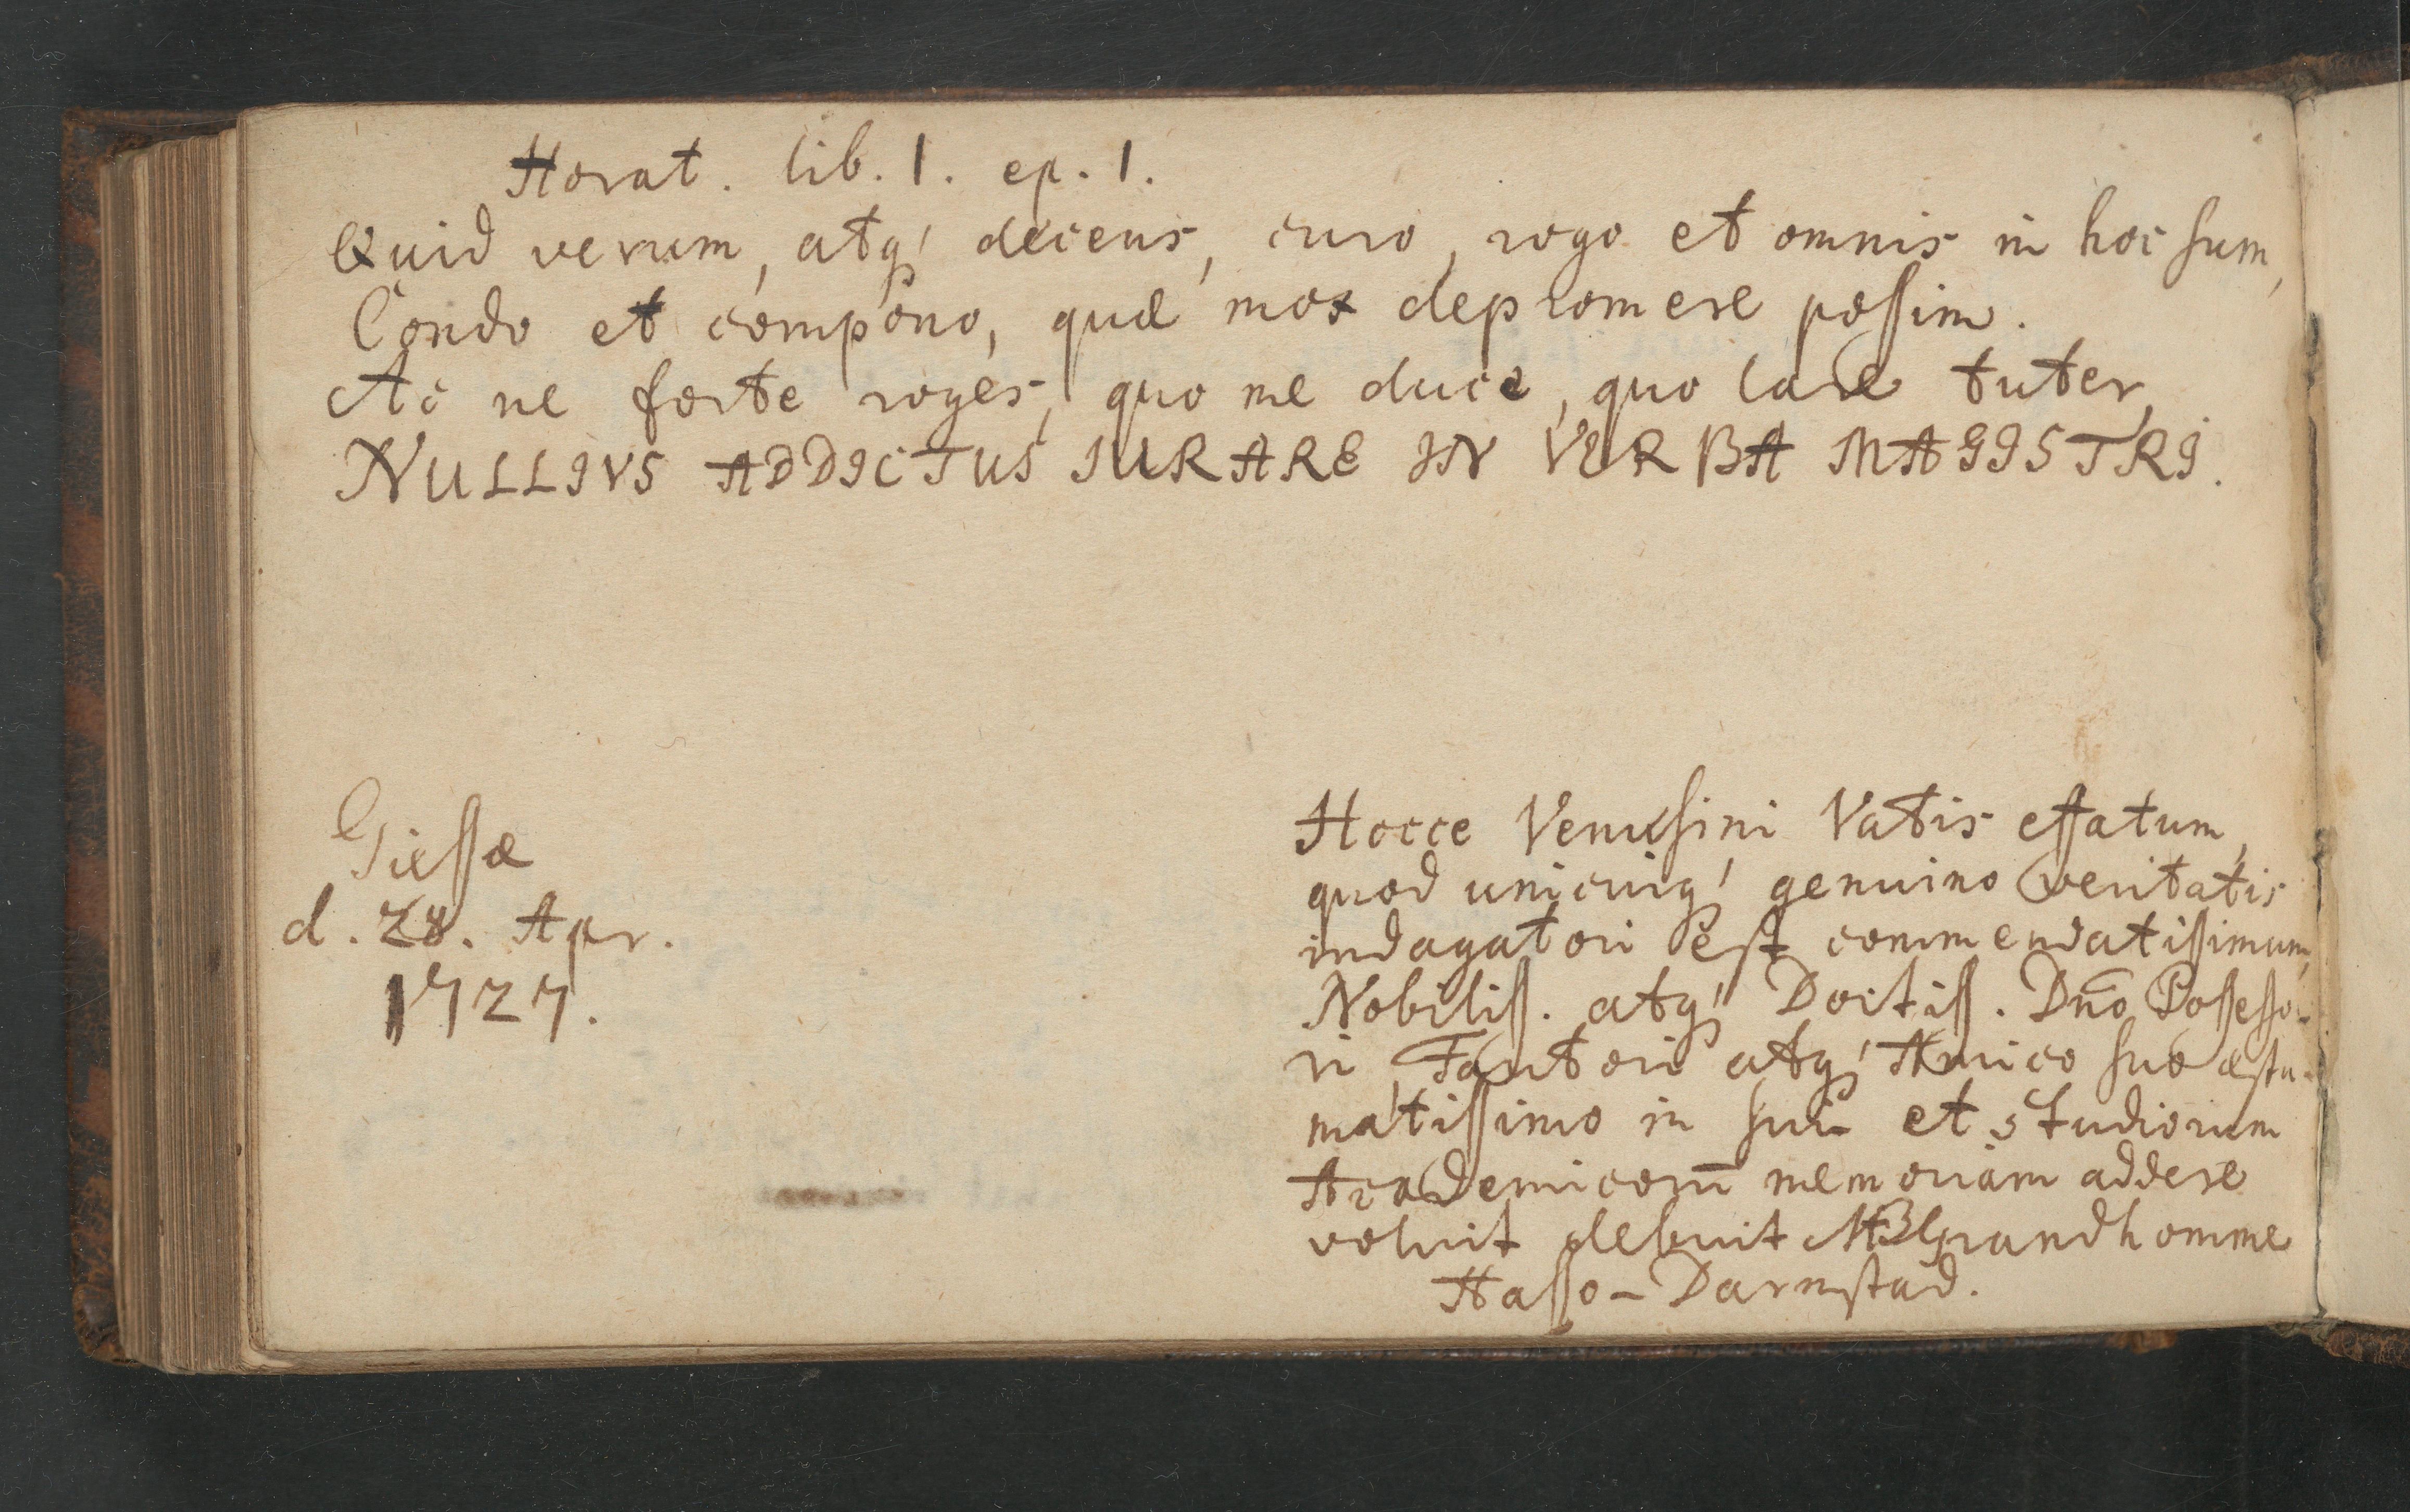 Horat. lib. 1. ep. 1.
Quid verum, atq' decens, curo, rogo et omnis in hoc sum,
Condo et compono, quæ mox depromere possim.
Ac ne forte roges, quo me duce, quo lare tuter,
NULLIVS ADDICTUS IURARE IN VERBA MAGISTRI.
Giessæ
d. 28. Apr.
1727.
Hocce Venusini Vatis effatum,
quod unicuiq' genuino veritatis
indagatori est commendatissimum,
Nobiliss. atq' Doctiss. Dn̄o Possesso-
ri Fautori atq' Amico suo æstu-
matissimo in sui et studiorum
Academicorū memoriam addere
voluit debuit Grandhomme
Hasso-Darmstad.